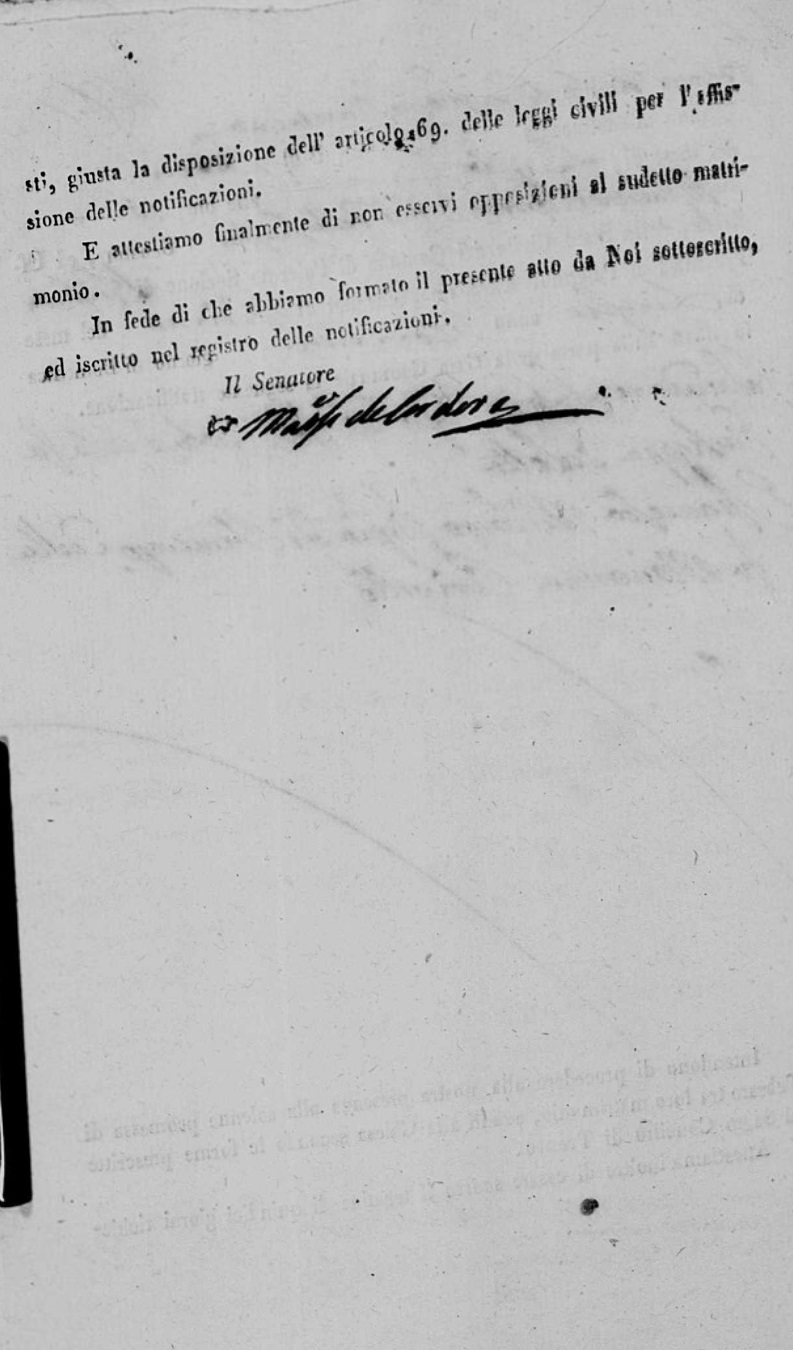 sti, giusta la disposizione dell' articolo 69. delle leggi civili per l'affis-
sione delle notificazioni.
E attestiamo finalmente di non esservi opposizioni al sudetto matri-
monio.
In fede di che abbiamo formato il presente atto da Noi sottoscritto,
ed iscritto nel registro delle notificazioni.
Il Senatore